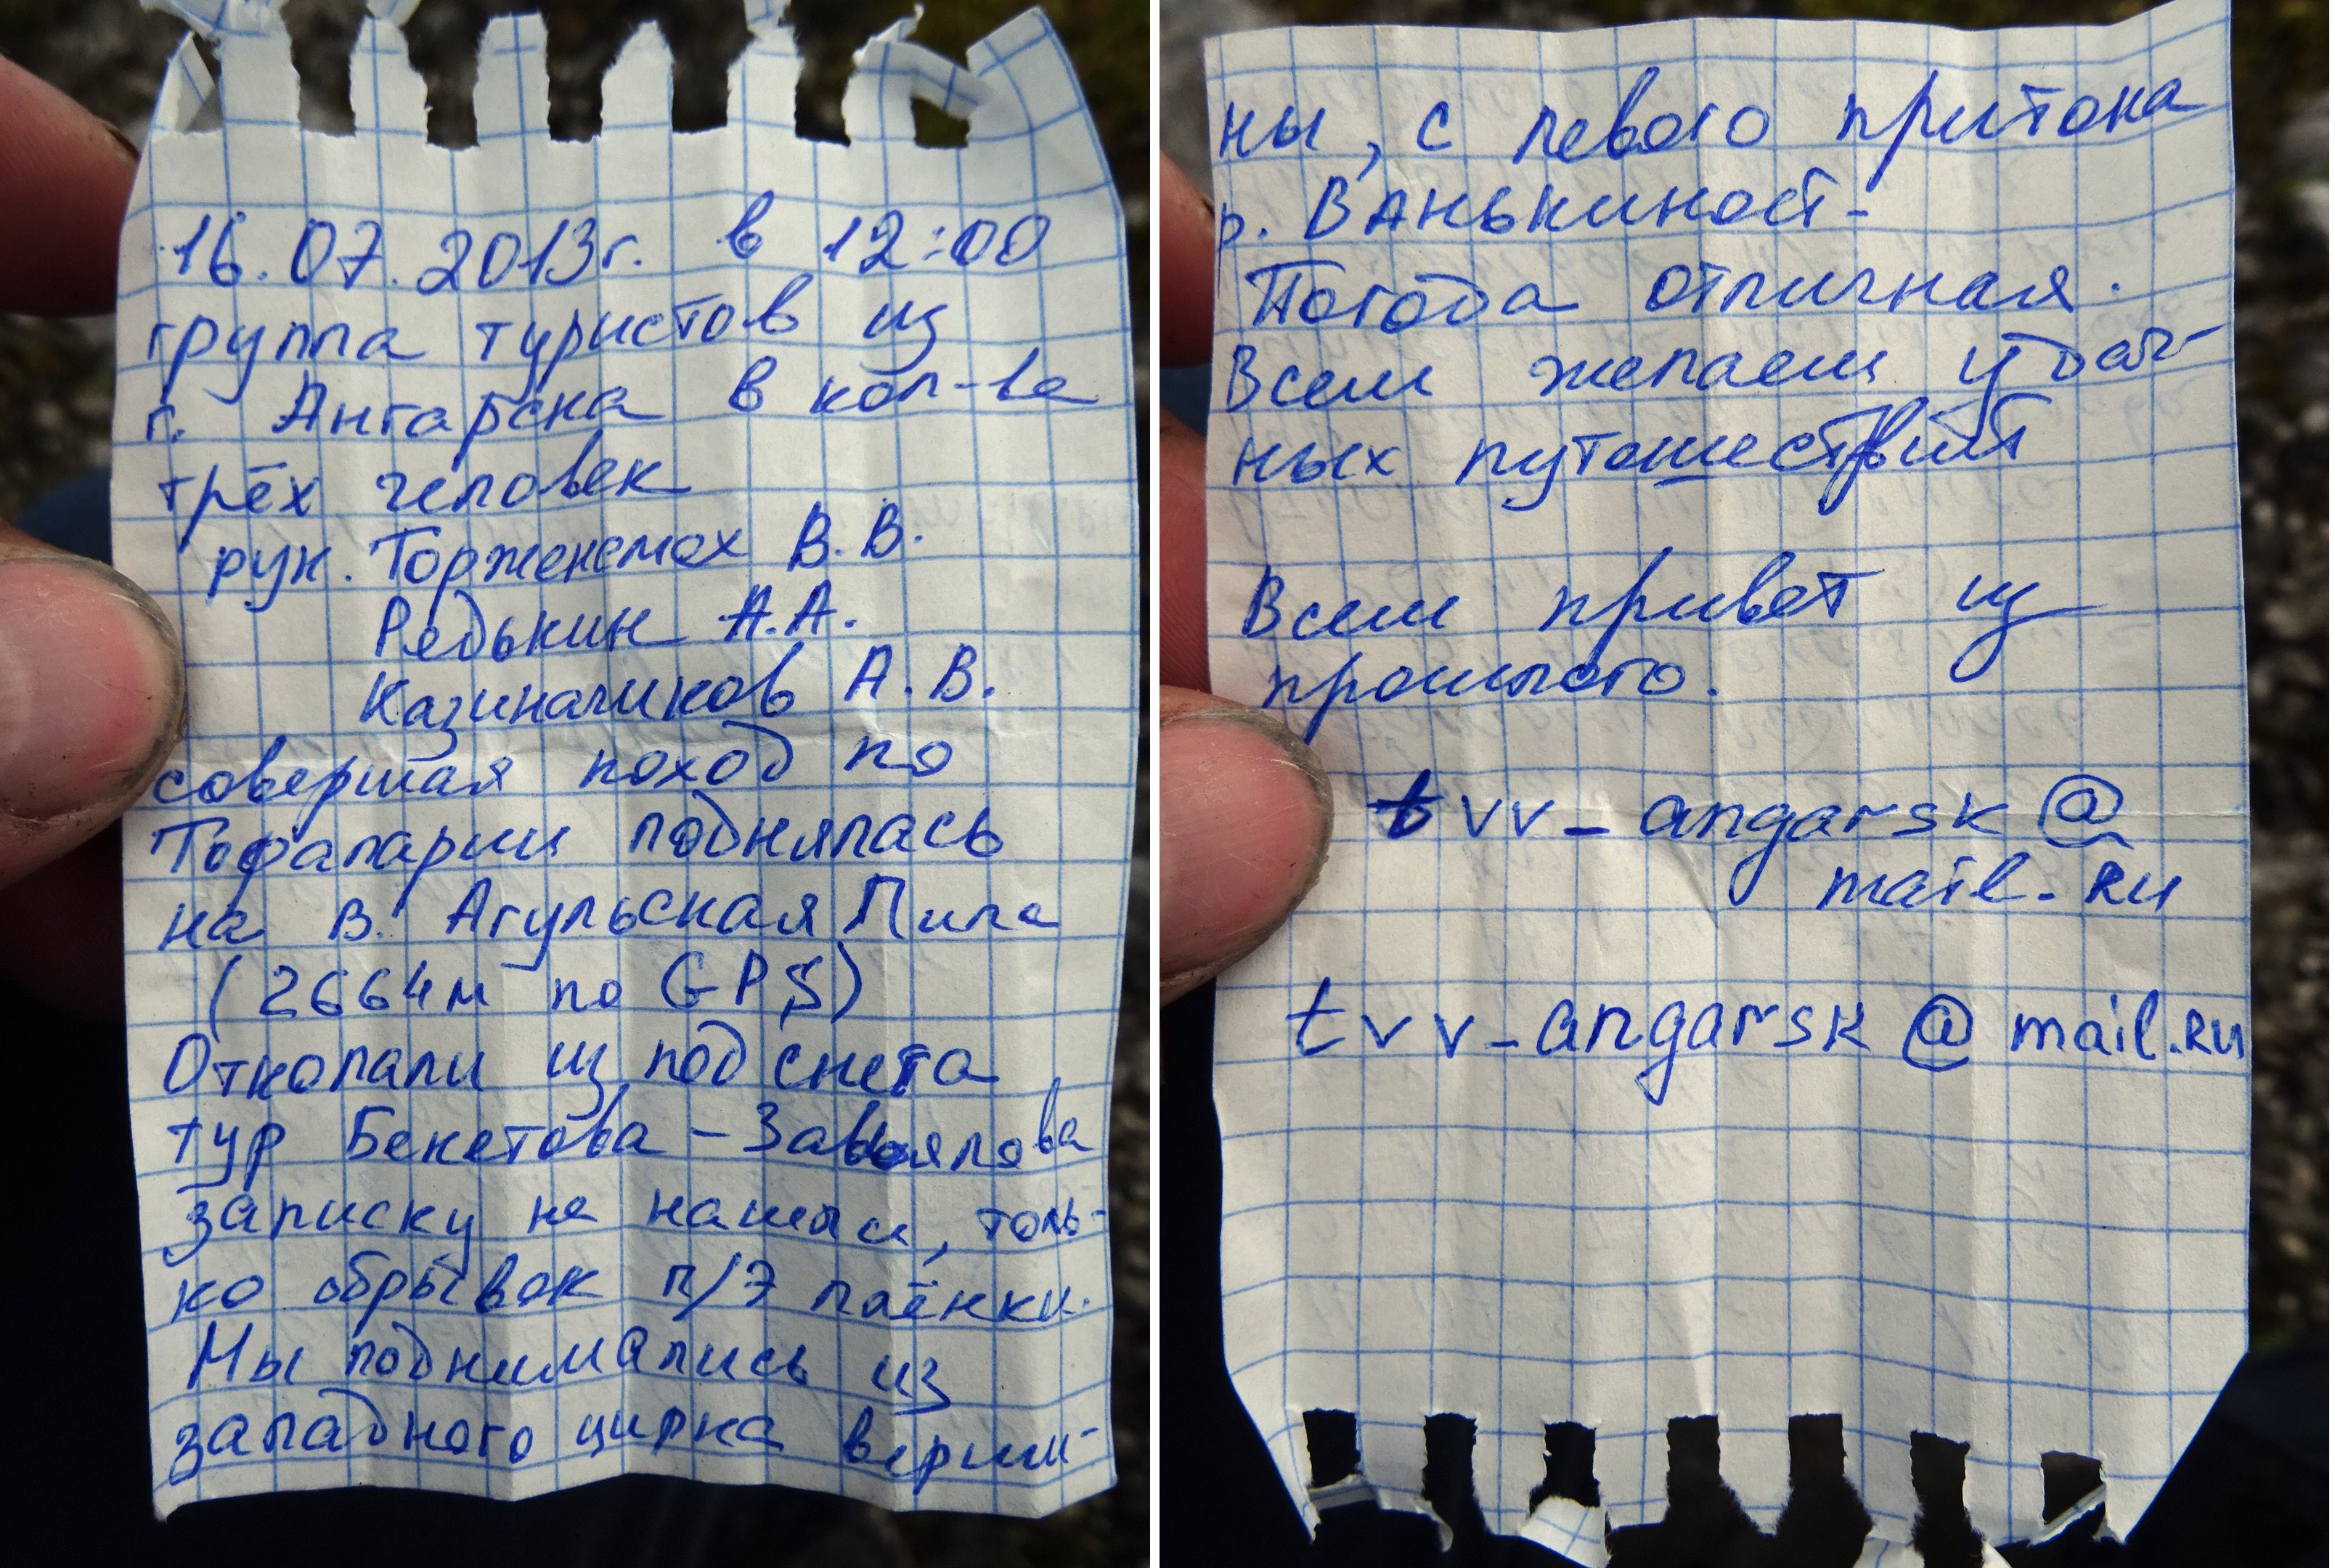 16.07.2013г. в 12:00
группа туристов из
г. Ангарска в кол-ве
трёх человек
рук. Торженсмех В.В.
Редькин А.А.
Казиначиков А.В.
совершая поход по
Тофаларии поднялась
на в. Агульская Пила
(2664м по GPS)
Откопали из под снега
тур Бекетова-Завьялова
записку не нашли, толь-
ко обрывок п/э плёнки.
Мы поднимались из
западного цирка верши-
ны, с левого притока
р. Ванькиност-
Погода отличная.
Всем желаем удач-
ных путешествий
Всем привет из
прошлого.
tvv_angarsk@
mail.ru
tvv_angarsk@mail.ru